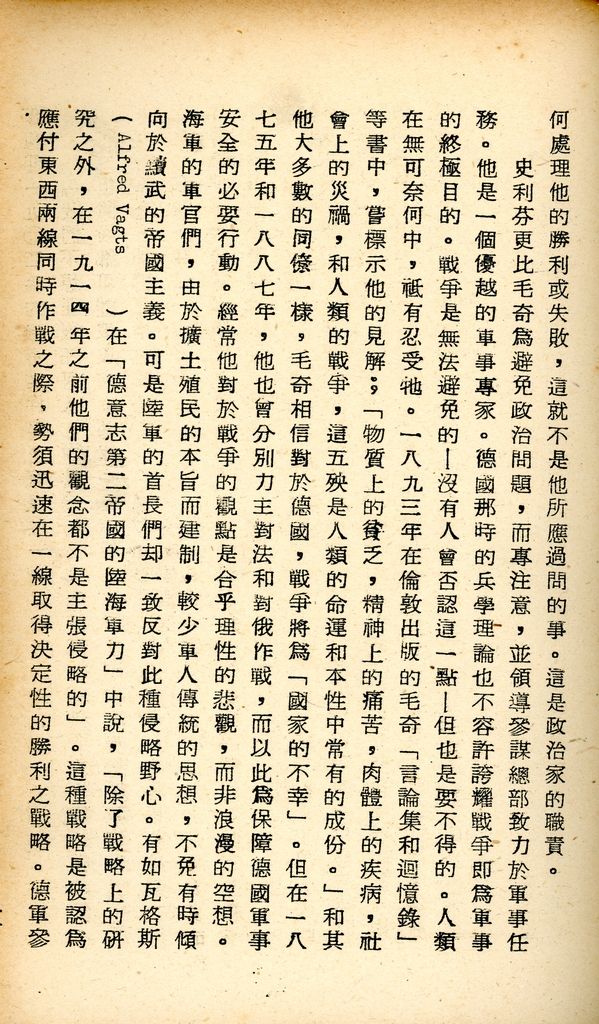 何處理他的勝利或失敗，這就不是他所應過問的事。這是政治家的職責。
史利芬更比毛奇爲避免政治問題，而專注意，並領導參謀總部致力於軍事任
務。他是一個優越的軍事專家。德國那時的兵學理論也不容許誇耀戰爭即爲軍事
的終極目的。戰爭是無法避免的—沒有人曾否認這一點—但也是要不得的。人類
在無可奈何中，祗有忍受牠。一八九三年在倫敦出版的毛奇「言論集和迴憶錄」
等書中，嘗標示他的見解；「物質上的貧乏，精神上的痛苦，肉體上的疾病，社
會上的災禍，和人類的戰爭，這五殃是人類的命運和本性中常有的成份。」和其
他大多數的同僚一樣，毛奇相信對於德國，戰爭將爲「國家的不幸」。但在一八
七五年和一八八七年，他也曾分別力主對法和對俄作戰，而以此爲保障德國軍事
安全的必要行動。經常他對於戰爭的觀點是合乎理性的悲觀，而非浪漫的空想。
海軍的軍官們，由於擴土殖民的本旨而建制，較少軍人傳統的思想，不免有時傾
向於黷武的帝國主義。可是陸軍的首長們却一致反對此種侵略野心。有如瓦格斯
（Alfred Vagts　）在「德意志第二帝國的陸海軍力」中說，「除了戰略上的研
究之外，在一九一四年之前他們的觀念都不是主張侵略的」。這種戰略是被認爲
應付東西兩線同時作戰之際，勢須迅速在一線取得決定性的勝利之戰略。德軍參